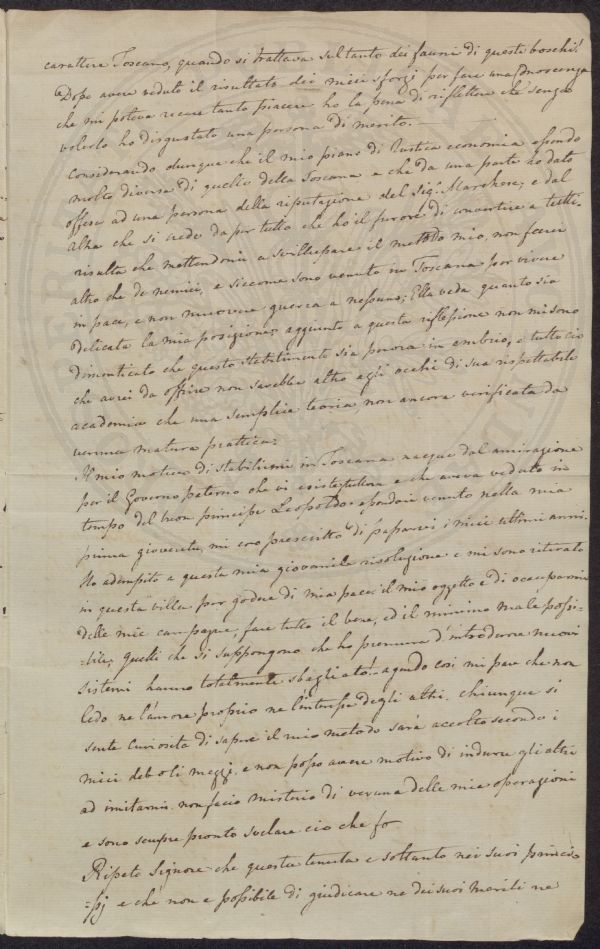 carattere Toscano, quando si trattava sultanto dei fauni di questi boschi!
Dopo avere veduto il risultato dei miei sforzi per fare una Conoscenza
che mi poteva recare tanto piacere ho la pena di riflettere che senza
volerlo ho disgustato una persona di merito. —
Considerando dunque che il mio piano di Rustica economia essendo
molto diverso di quello della Toscana e che da una parte ho dato
offesa ad una persona della riputazione del Sig.r Marchese, e dal
altra che si crede da per tutto che ho il furore di convertire a tutti.
risulta che mettendomi a sviluppare il metodo mio, non farei
altro che de nemici, e siccome sono venuto in Toscana per vivere
in pace, e non muovere guerra a nessuno; Ella veda quanto sia
delicata la mia posizione; aggiunto a questa riflessione non mi sono
dimenticato che questo stabilimento sia per ora in embrio, e tutto ciò
che avrei da offrire non sarebbe altro agli occhi di sua rispettabile
academia che una semplice teoria, non ancora verificata da
veruna matura prattica.
Il mio motivo di stabilirmi in Toscana nacque dal amirazione
per il Governo paterno che vi esiste tuttora e che aveva veduto in
tempo del buon principe Leopoldo essendovi venuto nella mia
prima gioventù, mi ero prescritto di passarvi i miei ultimi anni.
Ho adempito a questa mia giovanile risoluzione e mi sono ritirato
in questa villa per godere di mia pace. il mio oggetto e di occuparmi
delle mie campagne, fare tutto il bene, ed il minimo male possi-
-bile, quelli che si suppongono che ho premura d'introdurre nuovi
sistemi hanno totalmente sbagliato! — agendo così mi pare che non
ledo ne l'amore proprio ne l'interesse degli altri. chiunque si
sente curiosità di sapere il mio metodo sarà accolto secondo i
miei deboli mezzi, e non posso avere motivo di indurre gli altri
ad imitarmi. non facio misterio di veruna delle mie operazioni
e sono sempre pronto svelare cio che fo
Ripeto Signore che questa tenuta e soltanto nei suoi princi-
=pj e che non e possibile di giudicare ne dei suoi meriti ne